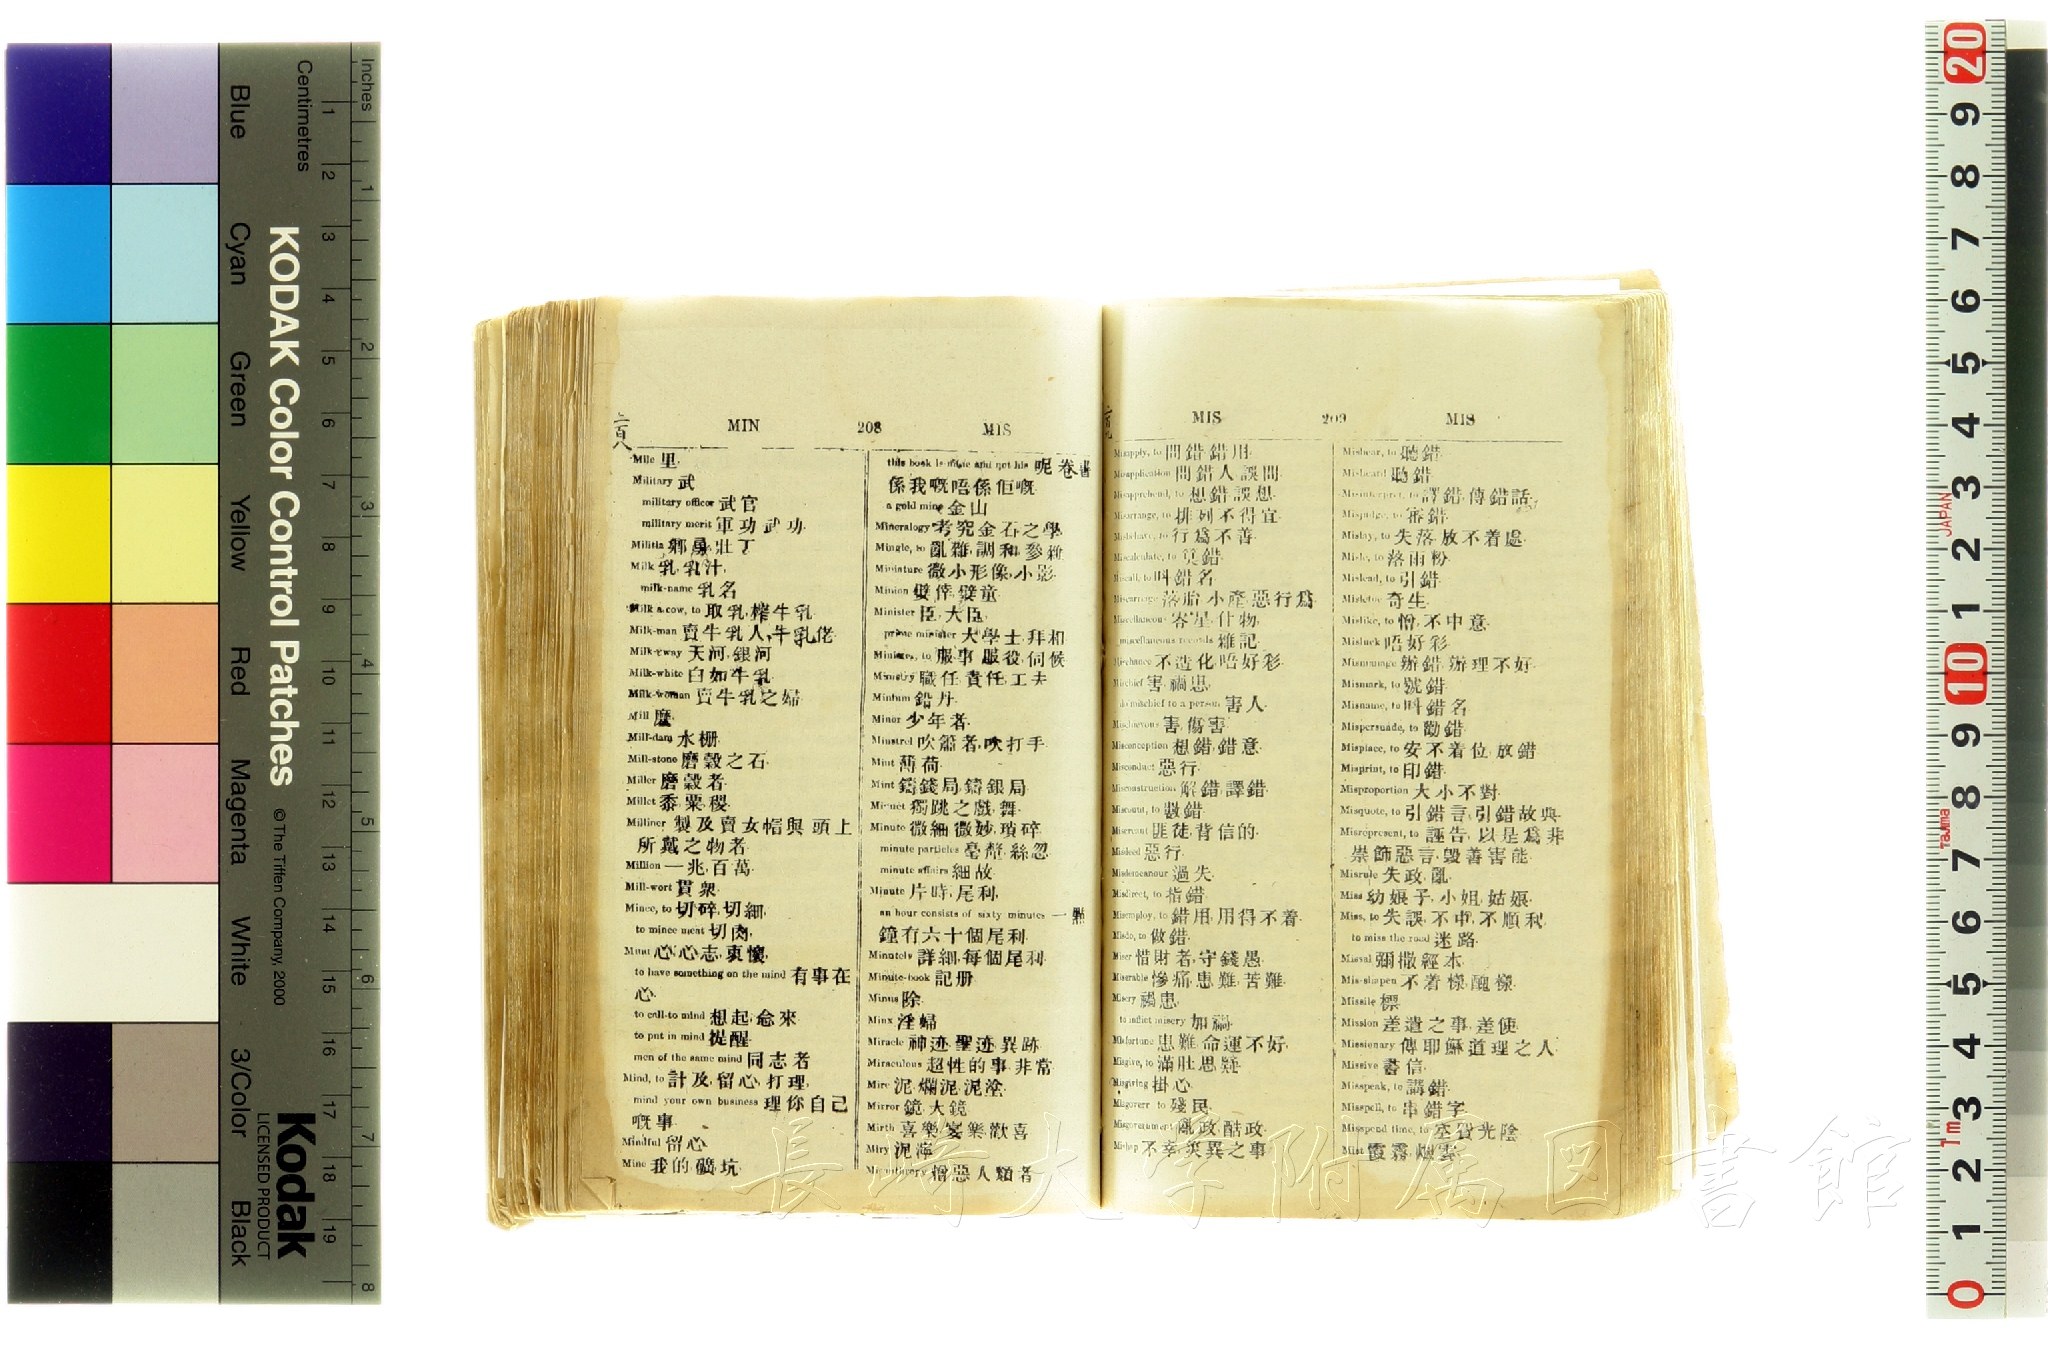 Inches
Centimetres
Blue
Cyan
Green
Yellow
Red
Magenta
White
3/Color
Black
KODAK Color Control Patches
© The Tiffen Company, 2000
Kodak
LICENSED PRODUCT
二百八
MIN 208 MIS
Mile 里
Military 武
military officer 武官
military merit 軍功武功
Militia 鄉勇,壯丁
Milk 乳,乳汁
milk-name 乳名
Milk a cow, to 取乳,榨牛乳
Milk-man 賣牛乳人,牛乳佬
Milk-way 天河,銀河
Milk-white 白如牛乳
Milk-woman 賣牛乳之婦
Mill 磨
Mill-dam 水柵
Mill-stone 磨穀之石
Miller 磨穀者
Millet 黍,粟,稷
Milliner 製及賣女帽與頭上
所戴之物者
Million 一兆,百萬
Mill-wort 貫衆
Mince, to 切碎,切細
to mince meat 切肉
Mind 心,心志,衷懷
to have something on the mind 有事在
心
to call to mind 想起,念來
to put in mind 提醒
men of the same mind 同志者
Mind, to 計及,留心,打理
mind your own business 理你自己
嘅事
Mindful 留心
Mine 我的,礦坑
this book is mine and not his 呢卷書
係我嘅唔係佢嘅
a gold mine 金山
Mineralogy 考究金石之學
Mingle, to 亂雜,調和,參雜
Miniature 微小形像,小影
Minion 嬖倖,嬖童
Minister 臣,大臣
prime minister 大學士,拜相
Minister, to 服事,服役,伺候
Ministry 職任,責任,工夫
Minium 鉛丹
Minor 少年者
Minstrel 吹簫者,吹打手
Mint 薄荷
Mint 鑄錢局,鑄銀局
Minuet 獨跳之戲,舞
Minute 微細,微妙,瑣碎
minute particles 毫釐,絲忽
minute affairs 細故
Minute 片時,尾利
an hour consists of sixty minutes 一點
鐘有六十個尾利
Minutely 詳細,每個尾利
Minute-book 記册
Minus 除
Minx 淫婦
Miracle 神迹,聖迹,異跡
Miraculous 超性的事,非常
Mire 泥,爛泥,泥塗
Mirror 鏡,大鏡
Mirth 喜樂,宴樂,歡喜
Miry 泥濘
Misanthropy 憎惡人類者
MIS 209 MIS
Misapply, to 問錯,錯用
Misapplication 問錯人,誤問
Misapprehend, to 想錯,誤想
Misarrange, to 排列不得宜
Misbehave, to 行爲不善
Miscalculate, to 算錯
Miscall, to 叫錯名
Miscarriage 落胎,小產,惡行爲
Miscellaneous 零星,什物
miscellaneous records 雜記
Mischance 不造化,唔好彩
Mischief 害,禍患
do mischief to a person 害人
Mischievous 害,傷害
Misconception 想錯,錯意
Misconduct 惡行
Misconstruction 解錯,譯錯
Miscount, to 數錯
Miscreant 匪徒,背信的
Misdeed 惡行
Misdemeanour 過失
Misdirect, to 指錯
Misemploy, to 錯用,用得不着
Misdo, to 做錯
Miser 惜財者,守錢愚
Miserable 慘痛,患難,苦難
Misery 禍患
to inflict misery 加禍
Misfortune 患難,命運不好
Misgive, to 滿肚思疑
Misgiving 掛心
Misgovern to 殘民
Misgovernment 亂政,酷政
Mishap 不幸,災異之事
Mishear, to 聽錯
Misheard 聽錯
Misinterpret, to 譯錯,傳錯話
Misjudge, to 審錯
Mislay, to 失落,放不着處
Misle, to 落雨粉
Mislead, to 引錯
Misletoe 寄生
Mislike, to 憎,不中意
Misluck 唔好彩
Mismanage 辦錯,辦理不好
Mismark, to 號錯
Misname, to 叫錯名
Mispersuade, to 勸錯
Misplace, to 安不着位,放錯
Misprint, to 印錯
Misproportion 大小不對
Misquote, to 引錯言,引錯故典
Misrepresent, to 誣告,以是爲非
祟飾惡言,毀善害能
Misrule 失政,亂
Miss 幼娘子,小姐,姑娘
Miss, to 失誤,不中,不順利
to miss the road 迷路
Missal 彌撒經本
Mis-shapen 不着樣,醜樣
Missile 標
Mission 差遣之事,差使
Missionary 傳耶穌道理之人
Missive 書信
Misspeak, to 講錯
Misspell, to 串錯字
Misspend time, to 空費光陰
Mist 霞霧,烟雲
長崎大学附属図書館
JAPAN
Tajima
1m